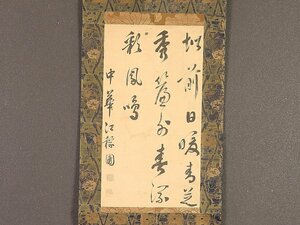 前日暖青芝
秀簾外春深
彩鳳鳴
中華江稼圃